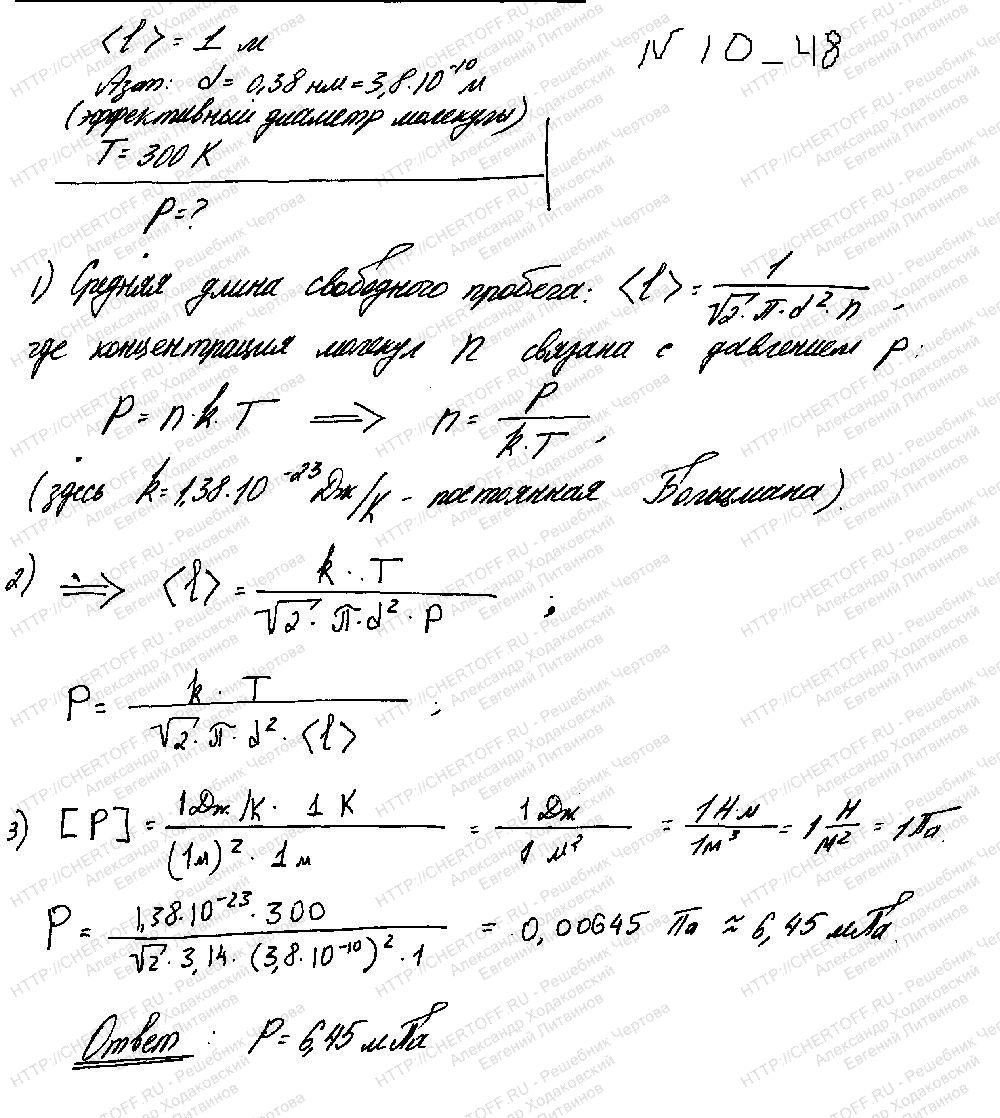 <l> = 1 м
N 10_48
Азот: d = 0,38 нм = 3,8·10⁻¹⁰ м
(эффективный диаметр молекулы)
T = 300 К
P = ?
1) Средняя длина свободного пробега: <l> = 1 / (√2·π·d²·n),
где концентрация молекул n связана с давлением p:
P = n·k·T ⟹ n = P / (k·T),
(здесь k = 1,38·10⁻²³ Дж/К - постоянная Больцмана).
2) ⟹ <l> = k·T / (√2·π·d²·P) ;
P = k·T / (√2·π·d²·<l>) ;
3) [P] = 1Дж/К · 1 К / ((1м)² · 1м) = 1 Дж / 1 м² = 1Н·м / 1м³ = 1 Н/м² = 1Па.
P = 1,38·10⁻²³·300 / (√2·3,14·(3,8·10⁻¹⁰)²·1) = 0,00645 Па ≈ 6,45 мПа.
Ответ: P = 6,45 мПа
HTTP://CHERTOFF.RU - Решебник Чертова
Александр Ходаковский
Евгений Литвинов